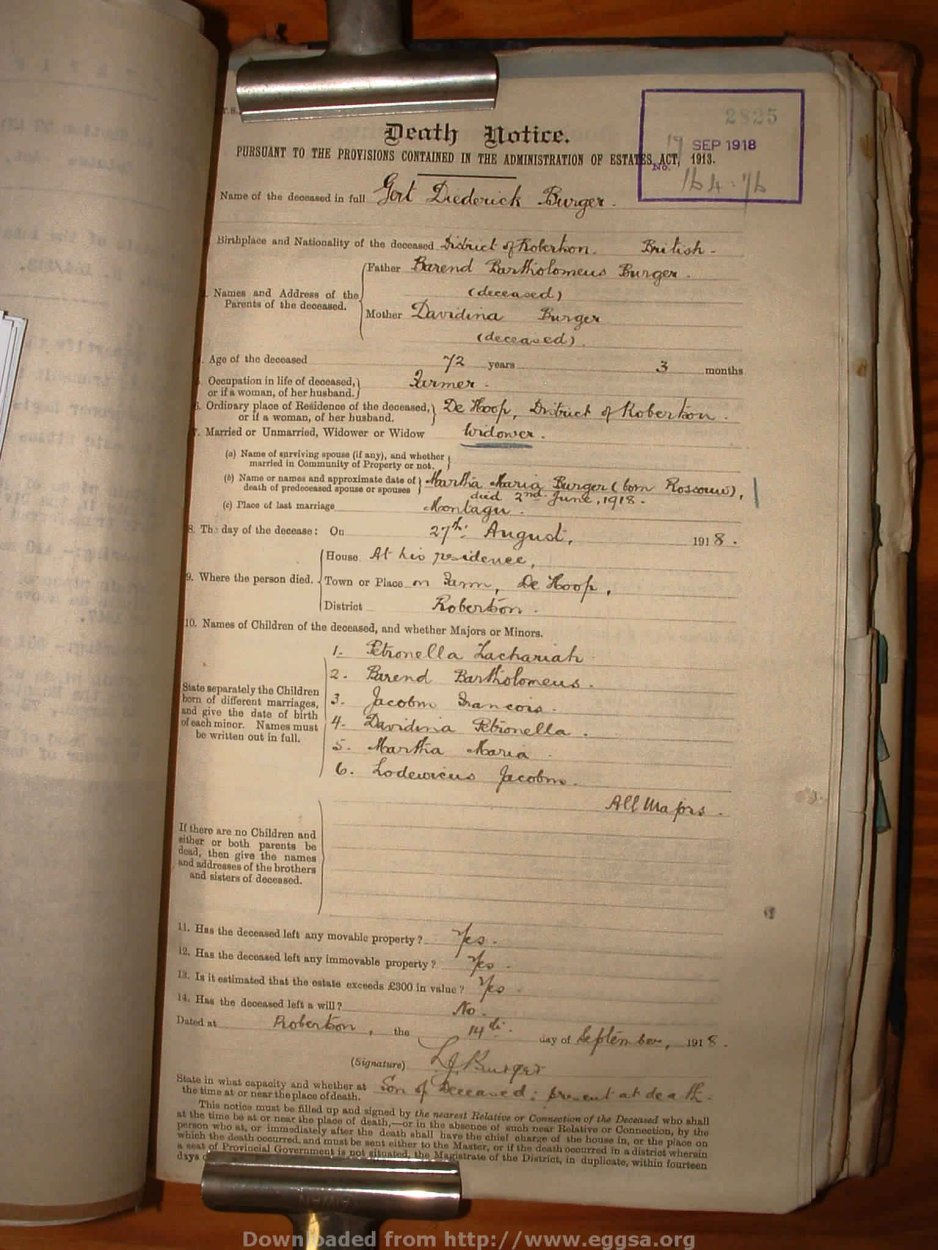 2825
Death Notice.
17 SEP 1918
PURSUANT TO THE PROVISIONS CONTAINED IN THE ADMINISTRATION OF ESTATES ACT, 1913.
No.
Name of the deceased in full Gert Diederick Burger.
Birthplace and Nationality of the deceased District of Robertson. British.
Names and Address of the Parents of the deceased.
Father Barend Bartholomeus Burger.
(deceased)
Mother Davidina Burger
(deceased).
Age of the deceased 72 years 3 months
Occupation in life of deceased, or if a woman, of her husband. Farmer.
Ordinary place of Residence of the deceased, or if a woman, of her husband. De Hoop, District of Robertson.
7. Married or Unmarried, Widower or Widow Widower.
(a) Name of surviving spouse (if any), and whether married in Community of Property or not.
(b) Name or names and approximate date of death of predeceased spouse or spouses Martha Maria Burger (born Rossouw),
died 2nd June, 1918.
(c) Place of last marriage Montagu.
8. The day of the decease: On 27th August, 1918.
9. Where the person died.
House At his residence,
Town or Place on Farm, De Hoop,
District Robertson.
10. Names of Children of the deceased, and whether Majors or Minors.
State separately the Children
born of different marriages,
and give the date of birth
of each minor. Names must
be written out in full.
1. Petronella Zachariah
2. Barend Bartholomeus.
3. Jacobus Francois.
4. Davidina Petronella.
5. Martha Maria
6. Lodewicus Jacobus.
All Majors.
If there are no Children and
either or both parents be
dead, then give the names
and addresses of the brothers
and sisters of deceased.
11. Has the deceased left any movable property? Yes.
12. Has the deceased left any immovable property? Yes.
13. Is it estimated that the estate exceeds £300 in value? Yes
14. Has the deceased left a will? No.
Dated at Robertson, the 14th. day of September, 1918.
(Signature) L J Burger
State in what capacity and whether at the time at or near the place of death. Son of Deceased: present at death.
This notice must be filled up and signed by the nearest Relative or Connection of the Deceased who shall
at the time be at or near the place of death,—or in the absence of such near Relative or Connection, by the
person who at, or immediately after the death shall have the chief charge of the house in, or the place on
which the death occurred, and must be sent either to the Master, or if the death occurred in a district wherein
a seat of Provincial Government is not situated, the Magistrate of the District, in duplicate, within fourteen
days
Downloaded from http://www.eggsa.org